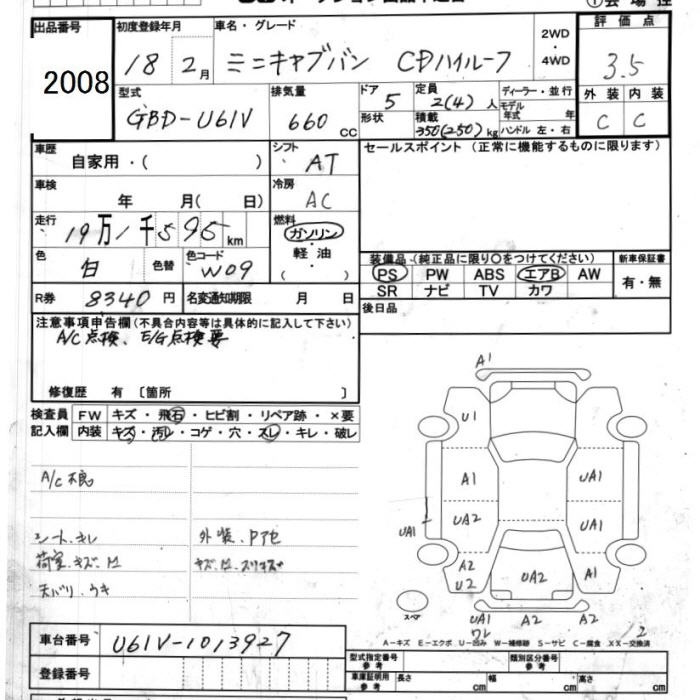 出品番号 初度登録年月 車名・グレード 2WD・4WD 評価点
2008 18 2月 ミニキャブバン CDハイルーフ 3.5
型式 排気量 ドア 定員 ディーラー・並行 外装 内装
GBD-U61V 660 cc 5 2(4)人 モデル年式 年 C C
形状 積載 350(250)kg ハンドル 左・右
車歴 シフト セールスポイント (正常に機能するものに限ります)
自家用・( ) AT
車検 冷房
年 月( 日) AC
走行 燃料
19万1千595km ガソリン・軽油
( )
色 色替 色コード 装備品(純正品に限り○をつけてください) 新車保証書
白 W09 PS PW ABS エアB AW 有・無
SR ナビ TV カワ
R券 8340円 名変通知期限 月 日 後日品
注意事項申告欄(不具合内容等は具体的に記入して下さい)
A/C点検、E/G点検要
修復歴 有 〔箇所 〕
検査員 FW キズ・飛石・ヒビ割・リペア跡・×要
記入欄 内装 キズ・汚レ・コゲ・穴・スレ・キレ・破レ
A/C不良
シート.キレ 外装.Pアセ
荷室.キズ.凹
天バリ.ウキ
A1
U1
A1 UA1
UA1 UA2 UA1
A2 U2 UA2 A1
スペア UA1 A2 A2
A-キズ E-エクボ U-凹み W-補修跡 S-サビ C-腐食 XX-交換済
車台番号 U61V-1013927
登録番号
型式指定番号 参考 類別区分番号 参考
車庫証明用 参考 長さ cm 幅 cm 高さ cm